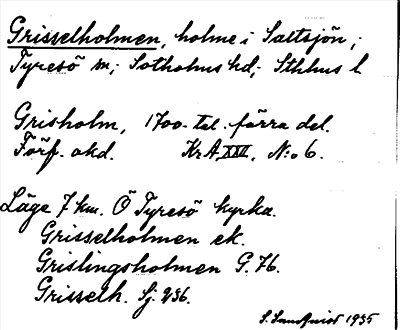 Grisselholmen, holme i Saltsjön,;
Tyresö sn; Sotholms hd; Sthlms l.
Grisholm, 1700-tal. förra del.
Förf. okd. KrA XXII, N:o 6.
Läge 7 km. Ö Tyresö kyrka.
Grisselholmen ek.
Grislingsholmen G. 76.
Grisselh. Sj. 236.
S. Sundqvist 1935